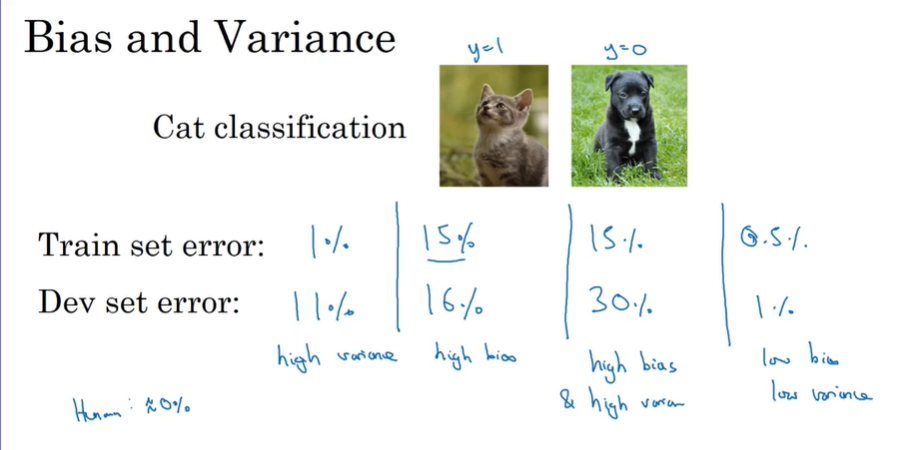 Bias and Variance
y=1 y=0
Cat classification
Train set error: 1% 15% 15% 0.5%
Dev set error: 11% 16% 30% 1%
high variance high bias high bias low bias
& high low variance
Human: ≈0%